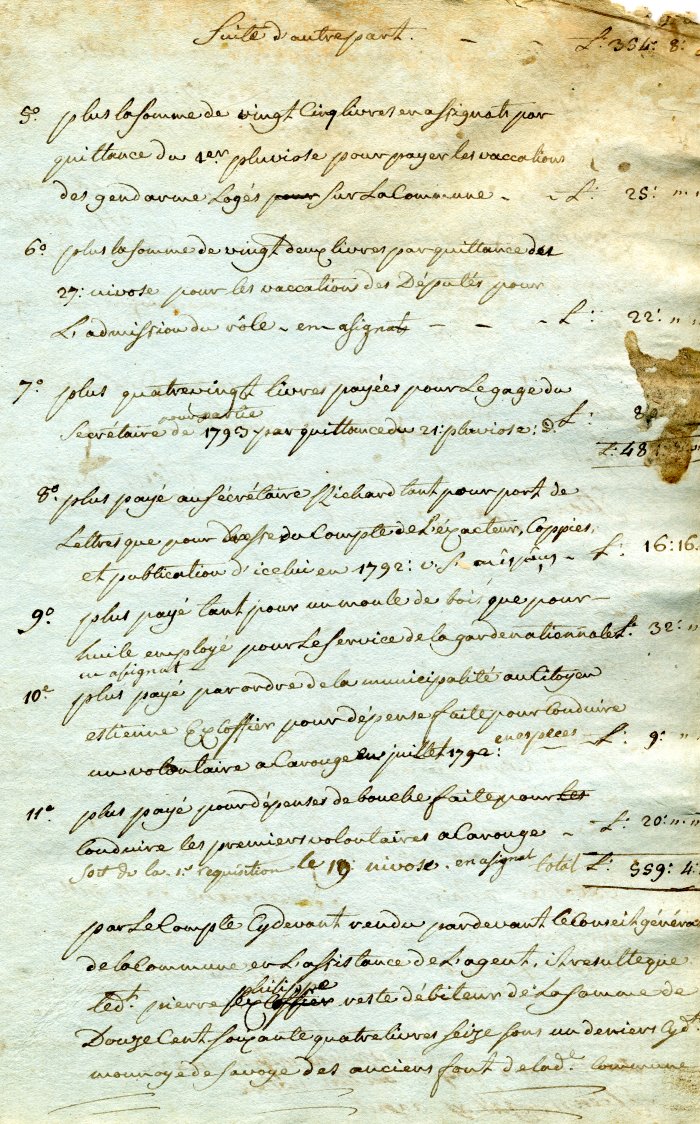 Suite d'autre part. - L.s 354: 8:
5° plus la somme de vingt Cinq livres en assignats par
quittance du 1er pluviose pour payer les vaccations
des gendarme Logés pour sur La Commune - - L.s 25: " "
6° plus la somme de vingt deux livres par quittance des
27: nivose pour les vaccation des Députés pour
L'admission du rôle - en asignat - - - L.s 22: " "
7° plus quatrevingt livres payées pour Le gage du
pour partie
Secrétaire de 1793 par quittance du 21: pluviose: L.s 8
L.s 481
8° plus payé au Sécrétaire Richard tant pour port de
Lettres que pour Dresse du Compte de L'exacteur, Coppies,
et publication d'icelui en 1792: L.s 16: 16.
9° plus payé tant pour un moule de bois que pour
huile employé pour Le Service de la garde nationnale L.s 32: "
en asignat
10° plus payé par ordre de la municipalité au Citoyen
estienne Excoffier pour dépense faite pour Conduire
un volontaire a Carouge en juillet 1792: en espèces L.s 9: "
11° plus payé pour dépenses de bouche faite pour les
Conduire les premiers volontaires a Carouge - L.s 20: " "
Sot de la 1e requisition le 19: nivose. en asignat total L.s 559: 4:
par Le Compte Cydevant rendu pardevant le Conseil généra
de la Commune en L'assistance de L'agent, il resulte que
philippe
led.t pierre Excoffier reste débiteur de La Somme de
Douze Cent Soixante quatre livres Seize Sous un deniers Cyd.t
monnoye de Savoye des anciens font de lad.e Commune